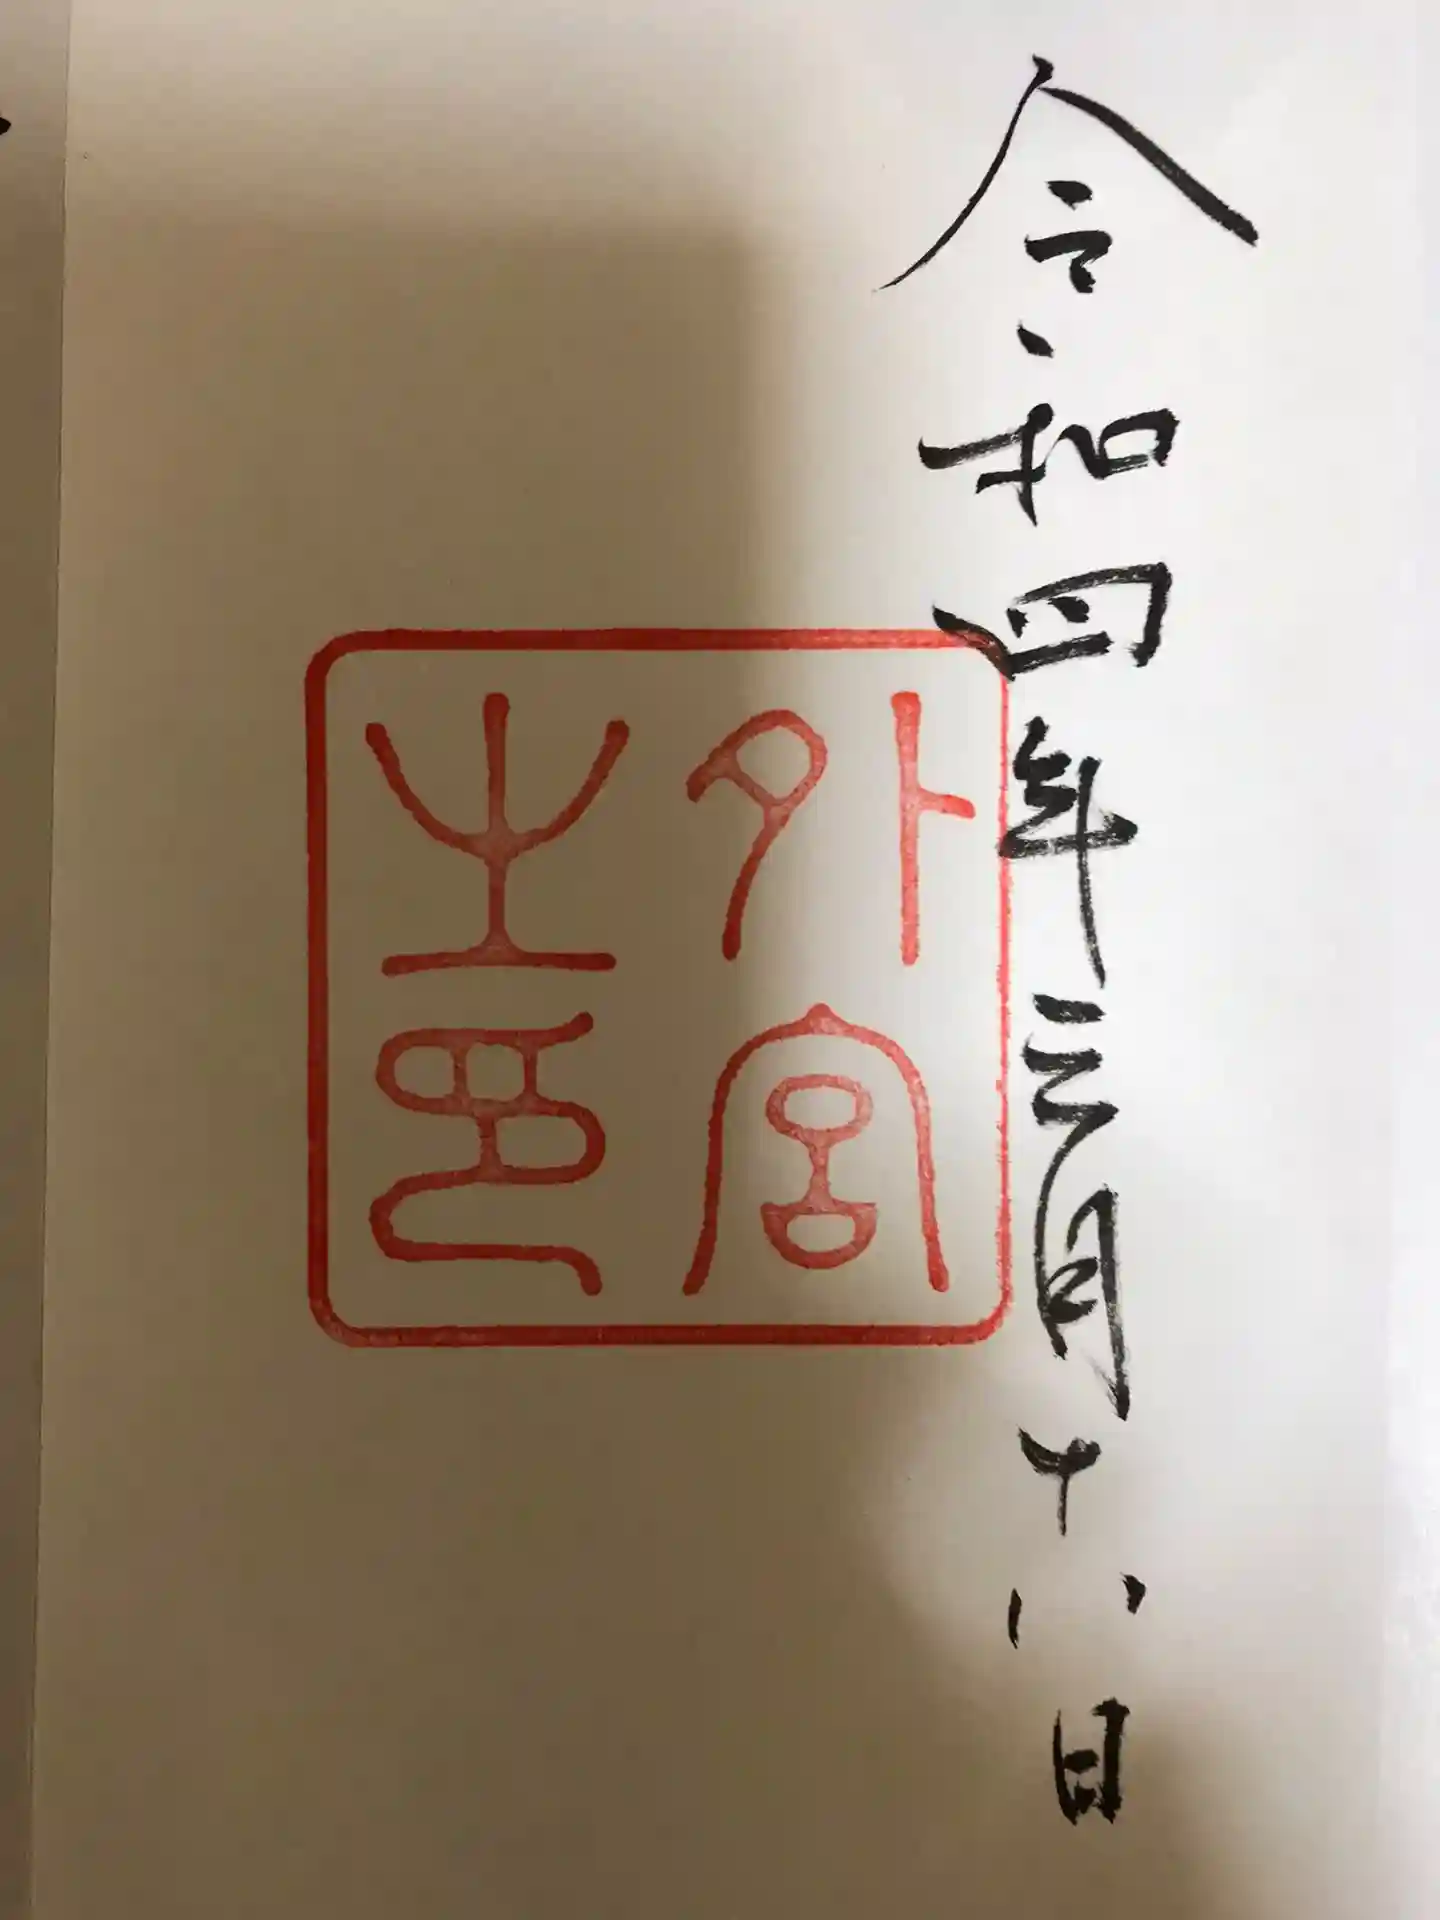 令和四年三月十八日
外宮
之印